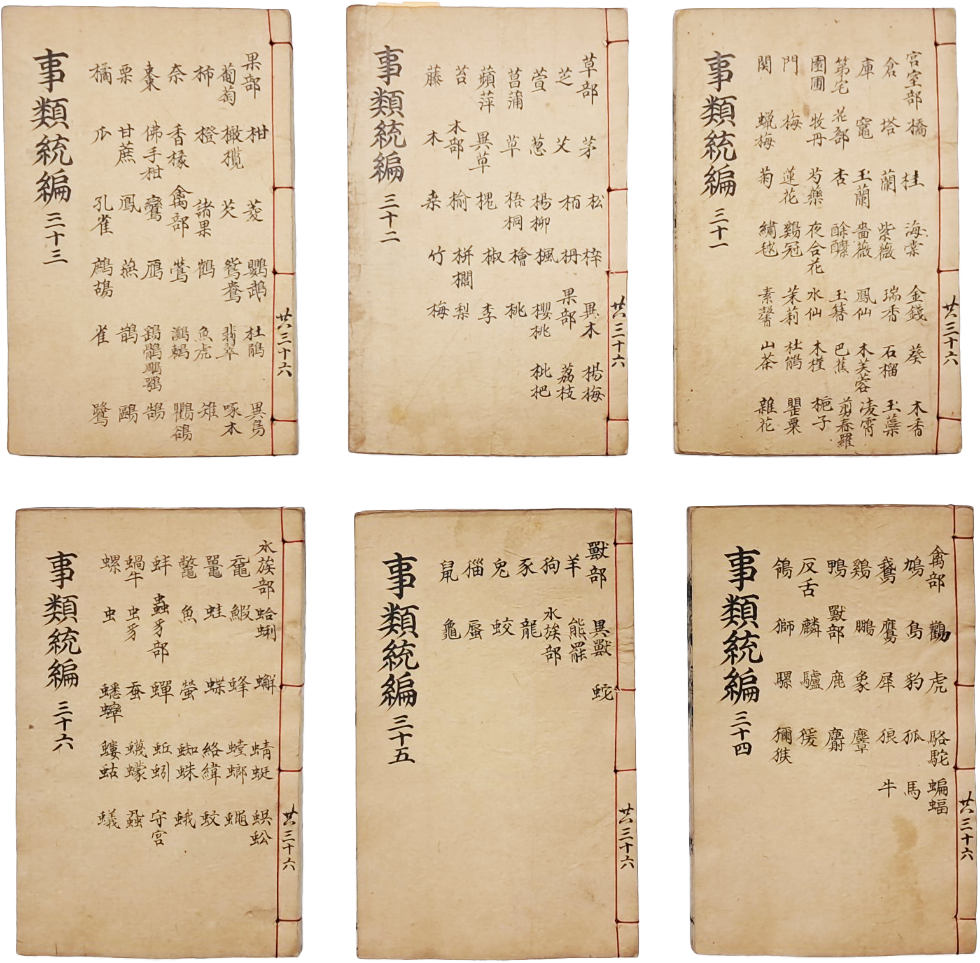 共三十六
宮室部 倉 庫 第宅 園圃 門 関
橋 塔 竈 花部 牧丹 梅 蠟梅
桂 蘭 玉蘭 杏 芍藥 蓮花 菊
海棠 紫薇 薔薇 酴醾 夜合花 鷄冠 繡毬
金錢 瑞香 鳳仙 玉簪 水仙 茉莉 素馨
葵 石榴 木芙蓉 巴蕉 木槿 杜鵑 山茶
木香 玉蘂 凌霄 剪春羅 梔子 罌粟 雜花
事類統編 三十一
共三十六
草部 芝 萱 菖蒲 蘋萍 苔 藤
茅 艾 葱 草 異草 木部 木
松 栢 楊柳 梧桐 槐 榆 桑
梓 枬 楓 檜 椒 栟櫚 竹
異木 果部 櫻桃 桃 李 梨 梅
楊梅 荔枝 枇杷
事類統編 三十二
共三十六
果部 葡萄 柿 柰 棗 栗 橘
柑 橄欖 橙 香櫞 佛手柑 甘蔗 瓜
菱 芡 諸果 禽部 鸞 鳳 孔雀
鸚鵡 鴛鴦 鶴 鶯 鴈 燕 鷓鴣
杜鵑 翡翠 魚虎 鸂鶒 鵲 雀
異鳥 啄木 雉 鸜鵒 鵠 鷗 鷺
事類統編 三十三
共三十六
禽部 鳩 鵞 鷄 鴨 反舌 鴿
鸛 鳥 鷹 鵬 獸部 麟 獅
虎 豹 犀 象 鹿 驢 騾
駱駝 狐 狼 麞 麝 猨 獼猴
蝙蝠 馬 牛
事類統編 三十四
共三十六
獸部 羊 狗 豕 兔 猫 鼠
異獸 熊羆 水族部 龍 蛟 蜃 龜
蛇
事類統編 三十五
共三十六
水族部 黿 鼉 鱉 蚌 蝸牛 螺
蛤蜊 鰕 蛙 魚 蟲豸部 虫豸 虫
蠏 蜂 蝶 螢 蟬 蚕 蟋蟀
蜻蜓 螳螂 絡緯 蜘蛛 蚯蚓 蠛蠓 螻蛄
蜈蚣 蠅 蚊 蛾 守宮 蝨 蟻
事類統編 三十六